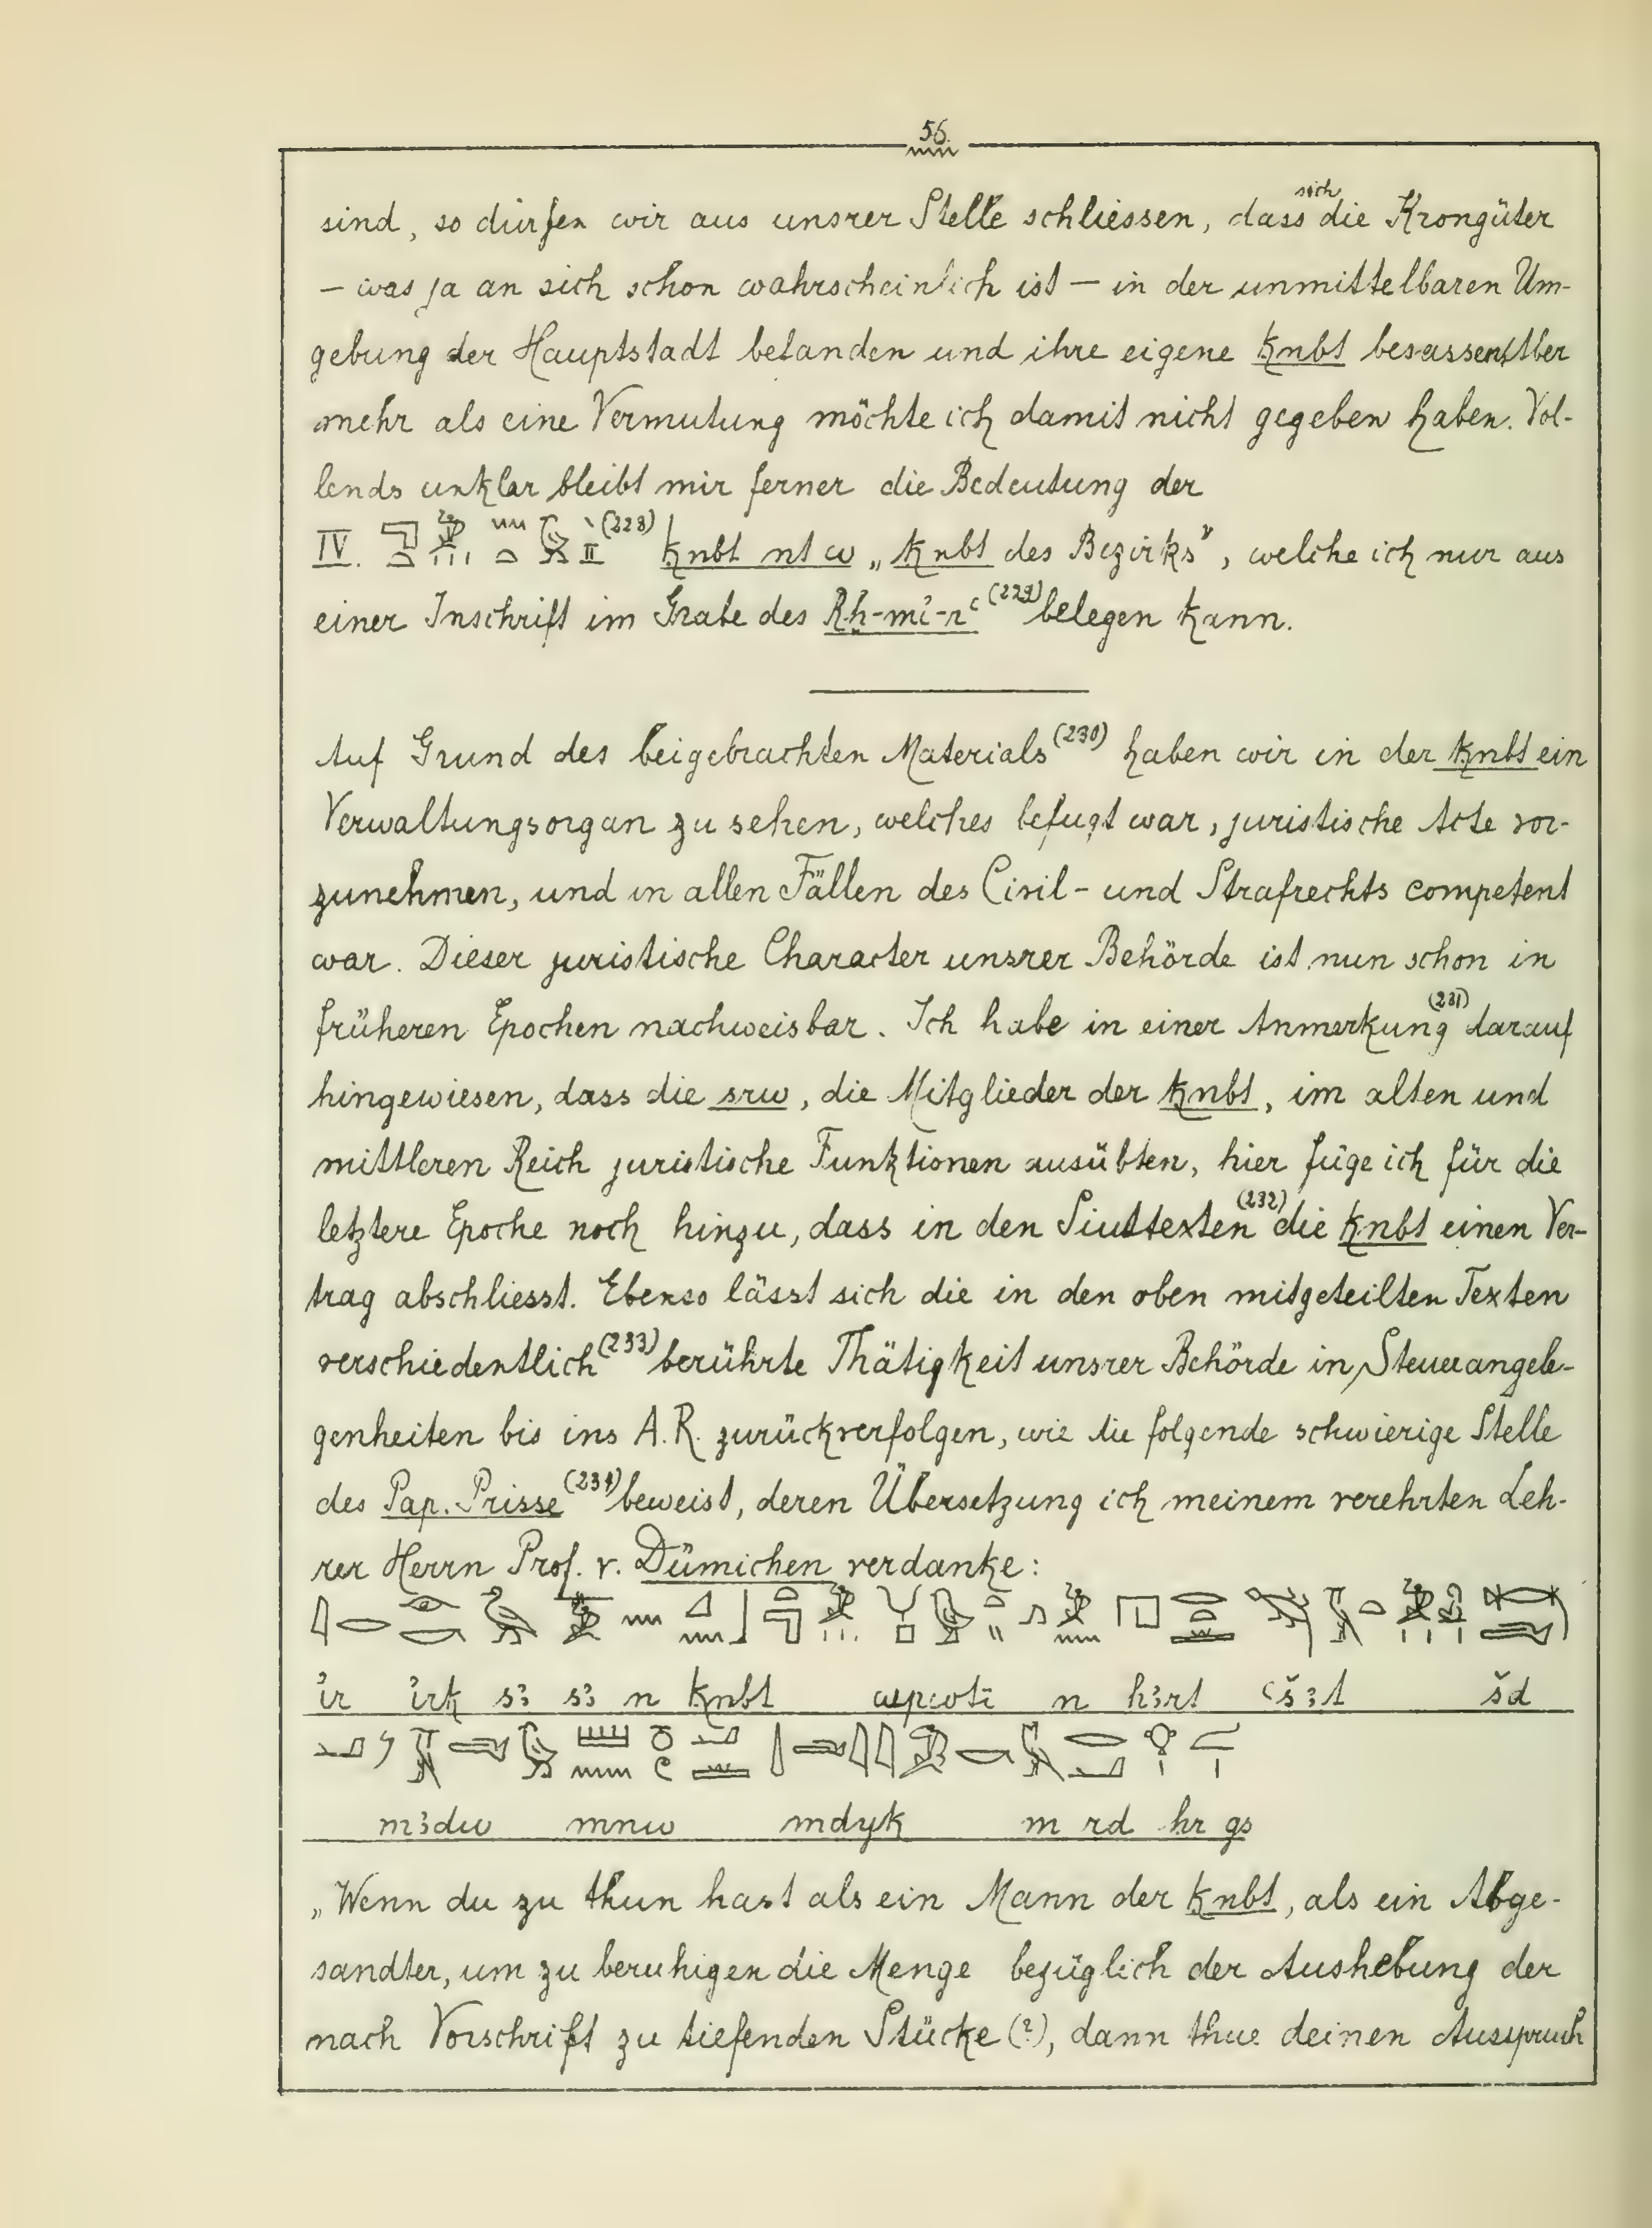 56.
sind, so dürfen wir aus unsrer Stelle schliessen, dass sich die Krongüter
– was ja an sich schon wahrscheinlich ist – in der unmittelbaren Um-
gebung der Hauptstadt befanden und ihre eigene ḳnbt besassen. Aber
mehr als eine Vermutung möchte ich damit nicht gegeben haben. Vol-
lends unklar bleibt mir ferner die Bedeutung der
IV. (228) ḳnbt nt w „ḳnbt des Bezirks", welche ich nur aus
einer Inschrift im Grabe des Rḫ-mi-rꜥ (229) belegen kann.
Auf Grund des beigebrachten Materials (230) haben wir in der ḳnbt ein
Verwaltungsorgan zu sehen, welches befugt war, juristische Acte vor-
zunehmen, und in allen Fällen des Civil- und Strafrechts competent
war. Dieser juristische Character unsrer Behörde ist nun schon in
früheren Epochen nachweisbar. Ich habe in einer Anmerkung (231) darauf
hingewiesen, dass die srw, die Mitglieder der ḳnbt, im alten und
mittleren Reich juristische Funktionen ausübten, hier füge ich für die
letztere Epoche noch hinzu, dass in den Siuttexten (232) die ḳnbt einen Ver-
trag abschliesst. Ebenso lässt sich die in den oben mitgeteilten Texten
verschiedentlich (233) berührte Thätigkeit unsrer Behörde in Steuerangele-
genheiten bis ins A. R. zurückverfolgen, wie die folgende schwierige Stelle
des Pap. Prisse (234) beweist, deren Übersetzung ich meinem verehrten Leh-
rer Herrn Prof. v. Dümichen verdanke:
ỉr ỉrk sꜣ sꜣ n ḳnbt wpwti n hꜣrt ꜥšꜣt šd
mꜣdw mnw mdyk m rd ḥr gs
„Wenn du zu thun hast als ein Mann der ḳnbt, als ein Abge-
sandter, um zu beruhigen die Menge bezüglich der Aushebung der
nach Vorschrift zu liefenden Stücke (?), dann thue deinen Ausspruch